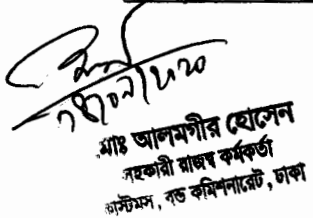 মোঃ আলমগীর হোসেন
সহকারী রাজস্ব কর্মকর্তা
কাস্টমস, বন্ড কমিশনারেট, ঢাকা